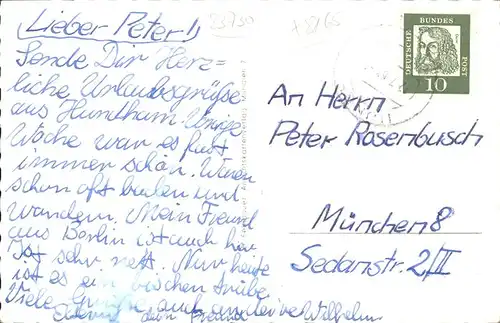 Lieber Peter!
23730
Sende Dir Herz=
liche Urlaubsgrüße
aus Hundham. Vorige
Woche war es fast
immer schön. Waren
schon oft baden und
wandern. Mein Freund
aus Berlin ist auch hier
Ist sehr nett. Nur heute
ist es ein bischen trübe.
Viele Grüße auch
dein Freund Wilhelm
DEUTSCHE BUNDESPOST
10
An Herrn
Peter Rosenbusch
München 8
Sedanstr. 2/II